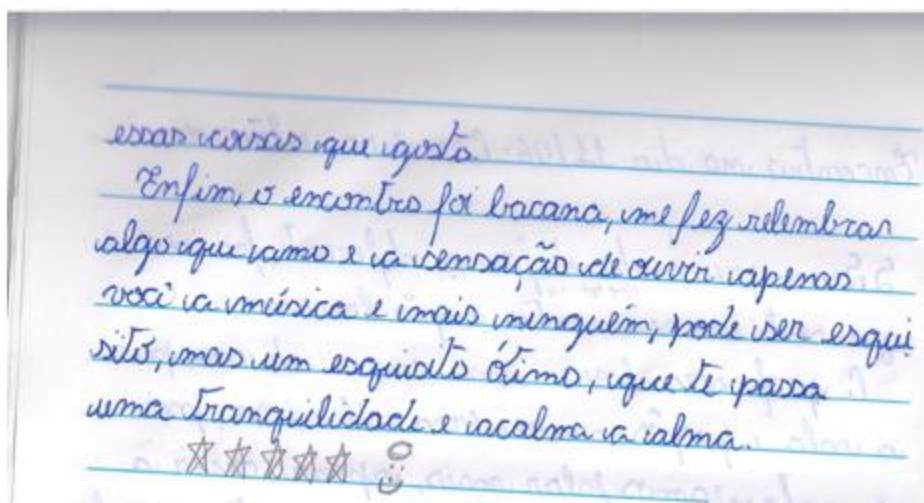 essas coisas que gosto.
Enfim, o encontro foi bacana, me fez relembrar
algo que amo e a sensação de ouvir apenas
você a música e mais ninguém, pode ser esqui
sito, mas um esquisito ótimo, que te passa
uma tranquilidade e acalma a alma.